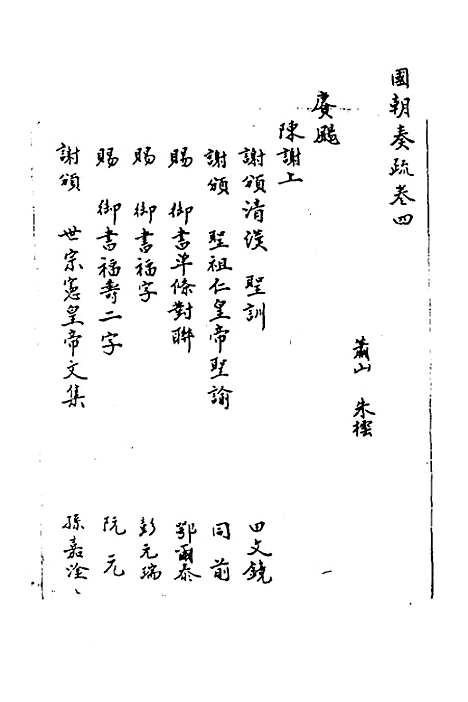 國朝奏疏卷四
蕭山 朱櫰
賡颺
陳謝上
謝頒清漢 聖訓 田文鏡
謝頒 聖祖仁皇帝聖諭 同前
賜 御書單條對聯 鄂爾泰
賜 御書福字 彭元瑞
賜 御書福壽二字 阮元
謝頒 世宗憲皇帝文集 孫嘉淦